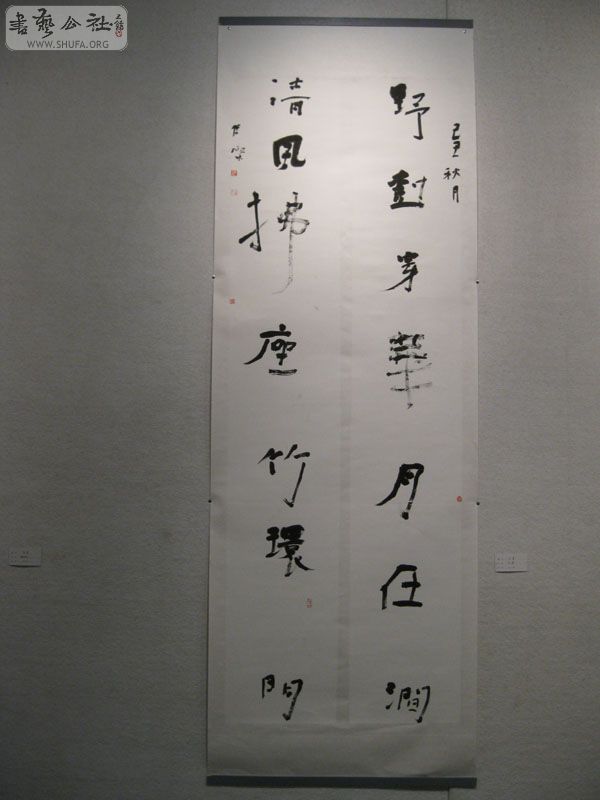 書藝公社
WWW.SHUFA.ORG
己丑秋月
野尌穿華月在澗
清風拂座竹環門